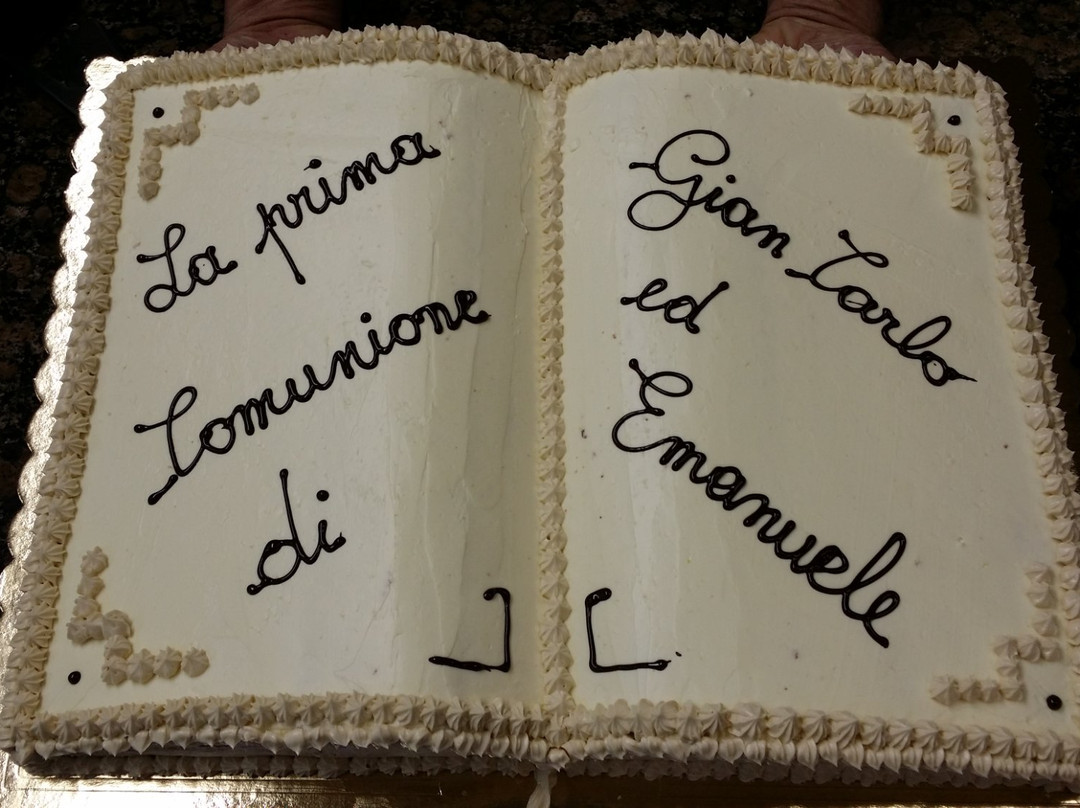 La prima
Comunione
di
Gian Carlo
ed
Emanuele